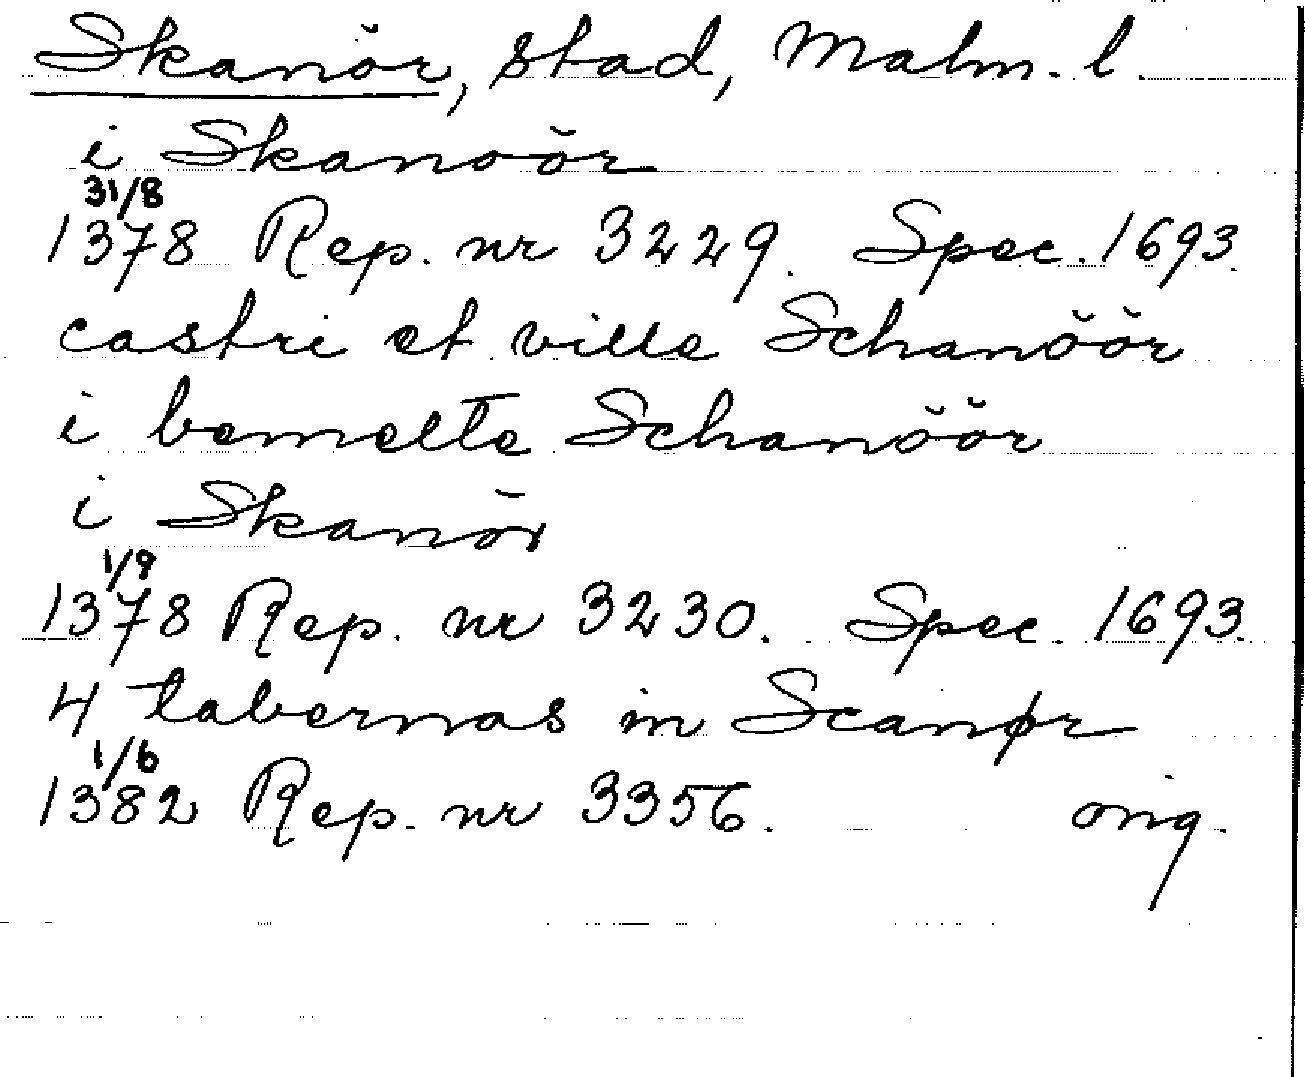 Skanör, stad, Malm. l.
i Skanoör
31/8
1378 Rep. nr 3229. Spec. 1693.
castri et ville Schanöör
i bemelte Schanöör
i Skanör
1/9
1378 Rep. nr 3230. Spec. 1693.
4 tabernas in Scanør
1/6
1382 Rep. nr 3356. orig.